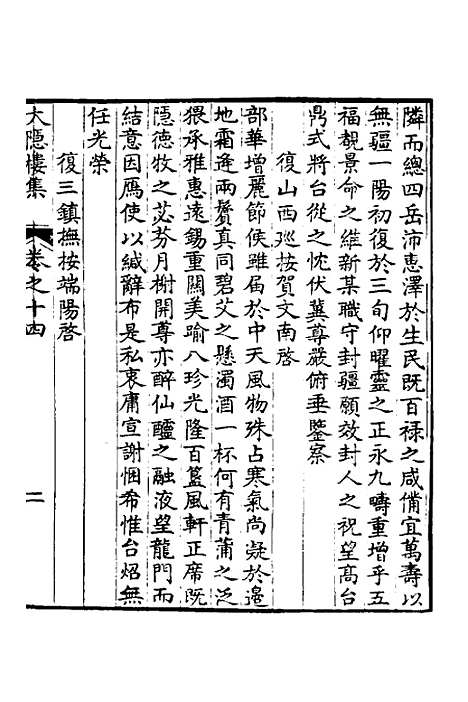 隣而總四岳沛恵澤於生民既百禄之咸備宜萬壽以
無疆一陽初復於三旬仰曜靈之正永九疇重增乎五
福覩景命之維新某職守封疆願效封人之祝望高台
鼎式將台從之忱伏冀尊嚴俯垂鑒察
復山西巡按賀文南啓
部華增麗節候雖届於中天風物殊占寒氣尚凝於邊
地霜逢兩鬢真同碧艾之懸濁酒一杯何有青蒲之泛
猥承雅惠遠錫重關美踰八珍光隆百簋風軒正席既
隱德牧之苾芬月榭開尊亦醉仙醽之融液望龍門而
結意因鴈使以緘辭布是私衷庸宣謝悃希惟台炤無
任光榮
復三鎮撫按端陽啓
大隱樓集 卷之十四 二